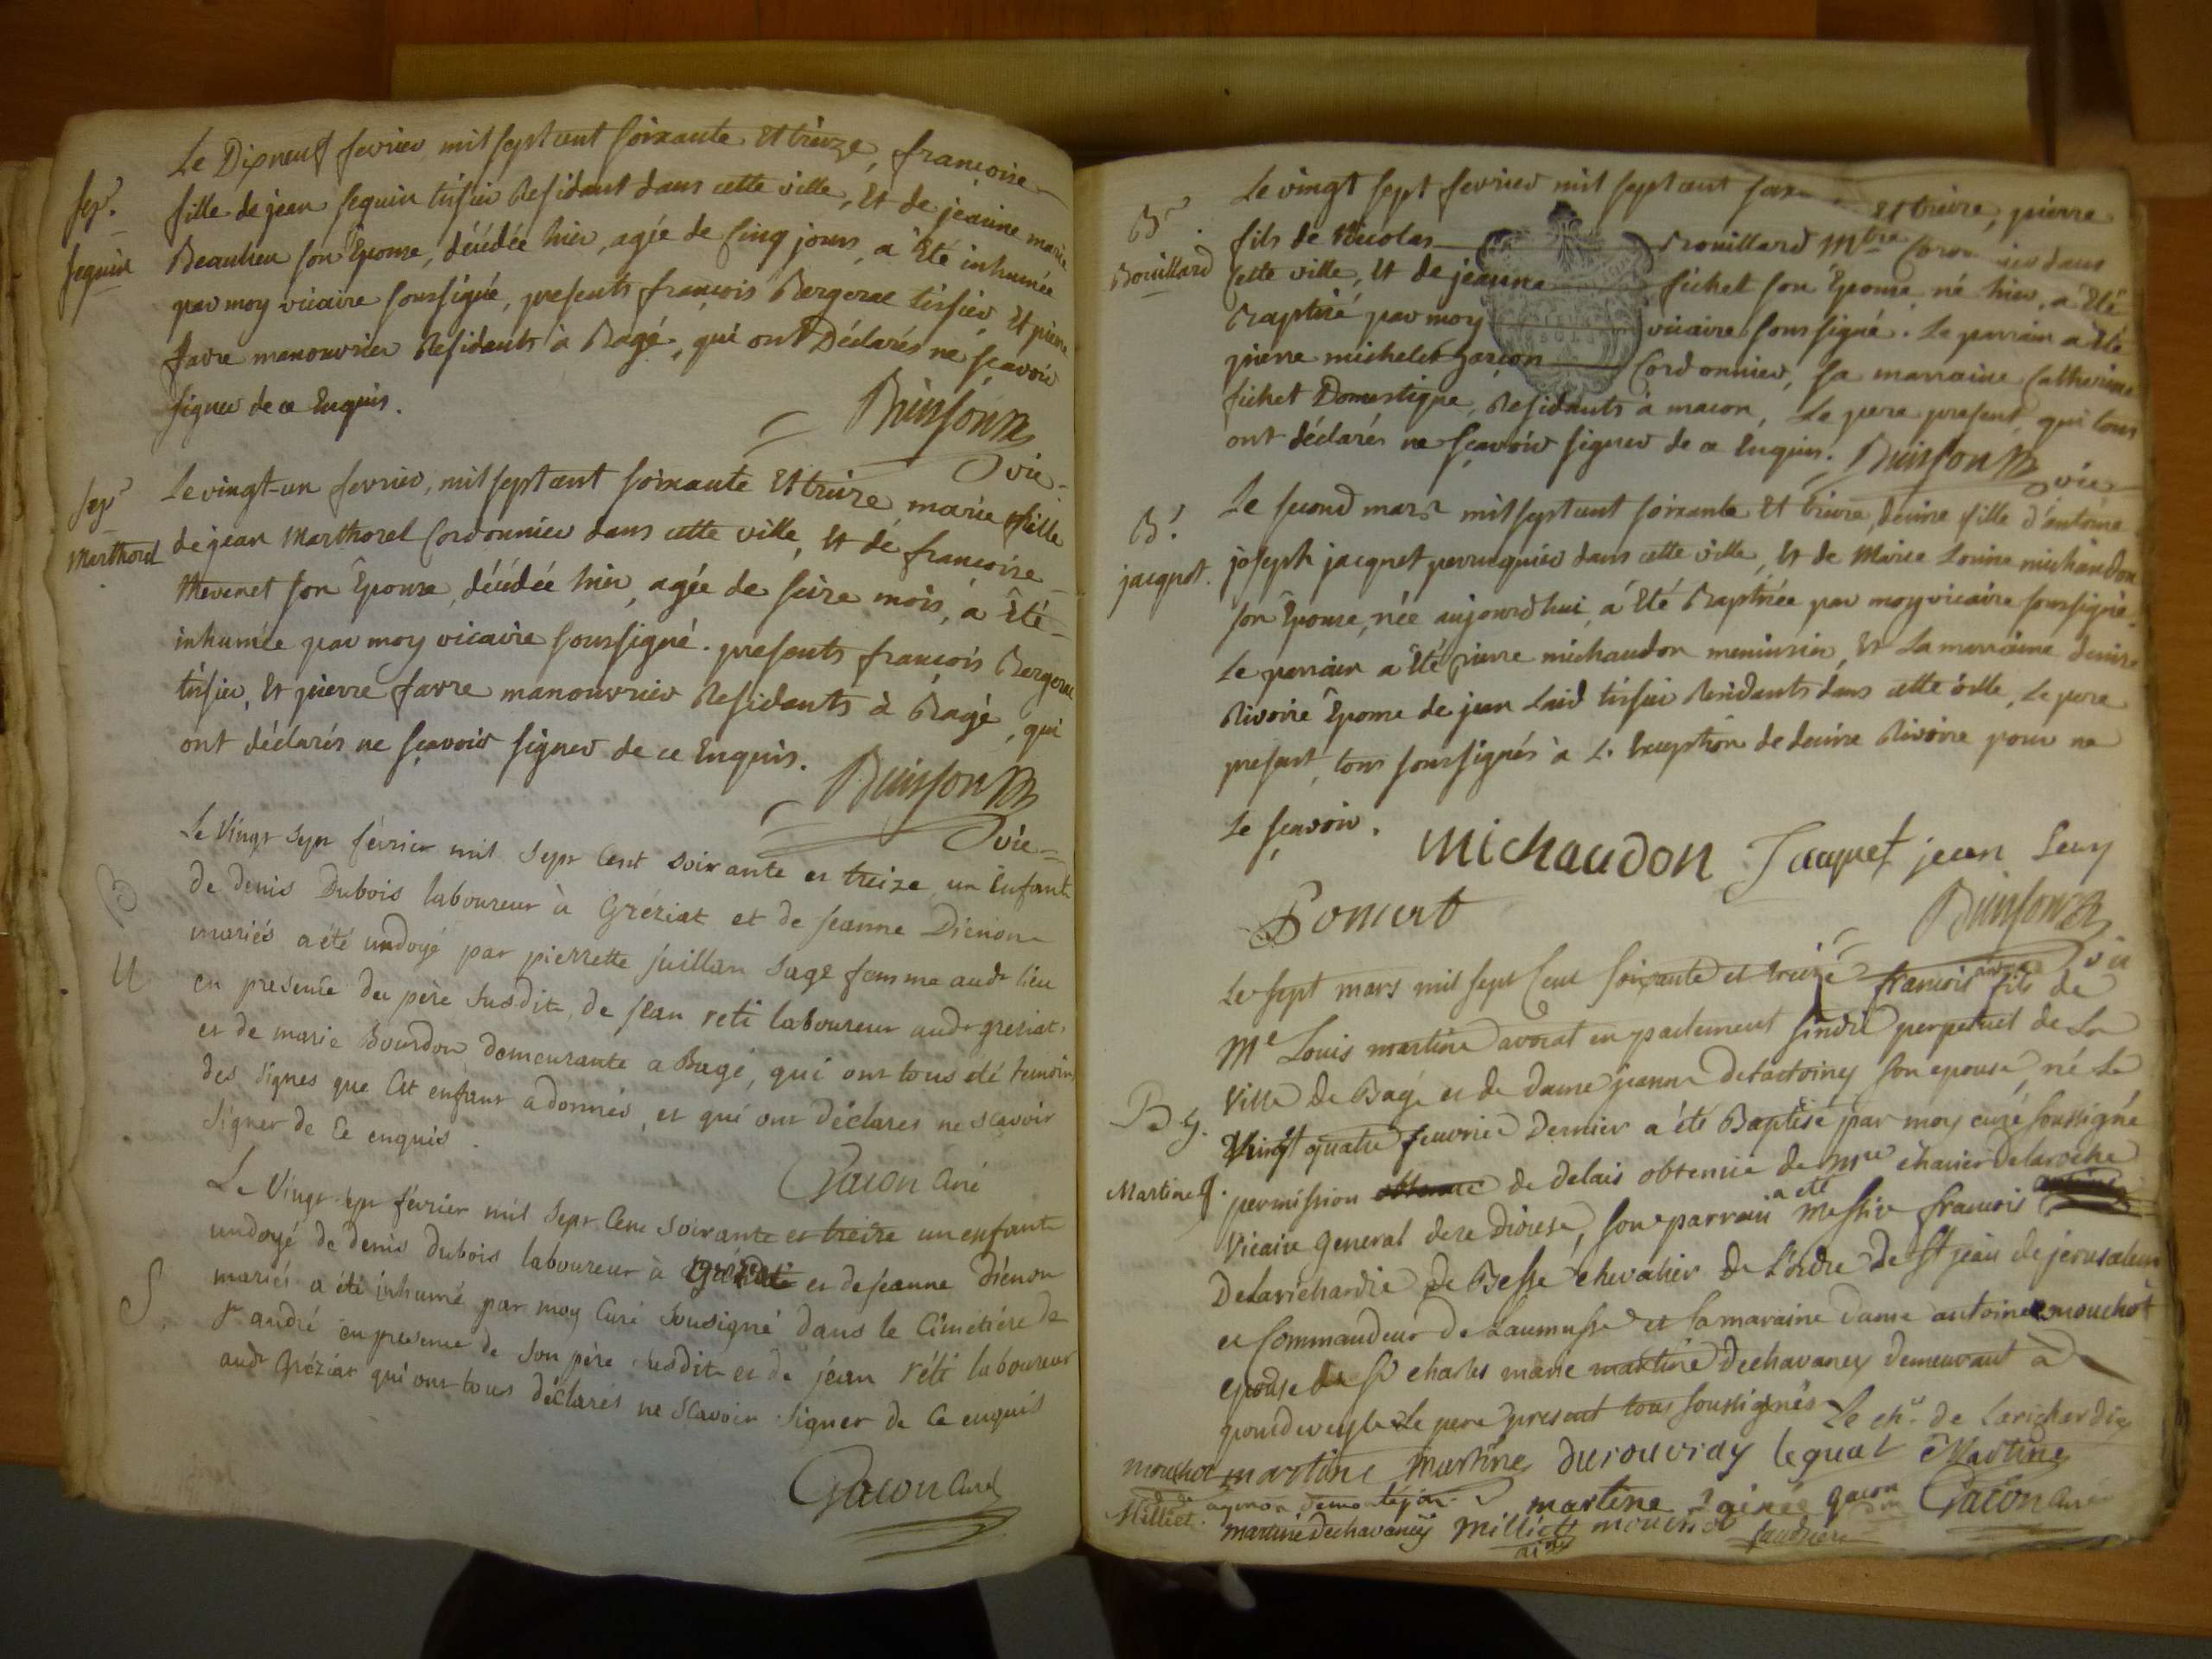 Le Dixneuf fevrier mil sept cent soixante Et treize, françoise
sep.re
seguin
fille de jean seguin tissier Residant dans cette ville, Et de jeanne marie
Beaulieu son Epouse, décédée hier, agée de sinq jours, a Eté inhumée
par moy vicaire soussigné, presents françois Bergerac tissier, Et pierre
favre manouvrier Residants à Bagé, qui ont Déclarés ne sçavoir
signer de ce Enquis.
Buisson
vic
sep.re
Marthorel
Le vingt-un fevrier, mil sept cent soixante Et treize marie fille
de jean Marthorel Cordonnier dans cette ville, Et de françoise
thevenet son Epouse, décédée hier, agée de seize mois, a Eté
inhumée par moy vicaire soussigné. presents françois Bergerac
tissier, Et pierre favre manouvrier Residants à Bagé, qui
ont déclarés ne sçavoir signer de ce Enquis.
Buisson
vic
B
U
Le Vingt sept février mil sept Cent soixante et treize un Enfant
de denis Dubois laboureur à Gréziat et de jeanne Dienon
mariés a été undoyé par pierrette juillan sage femme audt lieu
en presence du père susdit, de jean reti laboureur audt greziat,
et de marie Bourdon demeurante a Bagé, qui ont tous été temoins
des signes que Cet enfant a donnés, et qui ont déclarés ne scavoir
signer de Ce enquis.
Gacon Curé
S.
Le Vingt sept février mil sept Cent soixante et treize un enfant
undoyé de denis dubois laboureur à Gréziat et de jeanne Diénon
mariés a été inhumé par moy Curé sousigné dans le Cimetiére de
St andré en presence de son père susdit et de jéan réti laboureur
audt Gréziat qui ont tous déclarés ne scavoir signer de Ce enquis
Gacon Curé
B.re
Bouillard
Le vingt sept fevrier mil sept cent soix Et treize, pierre
fils de Nicolas Bouillard Mtre Cordonnier dans
cette ville, Et de jeanne fichet son Epouse, né hier, a Eté
Baptisé par moy vicaire soussigné. Le parrain a Eté
pierre michelet garçon Cordonnier, sa marraine Catherine
fichet Domestique, Residants à macon, Le pere present, qui tous
ont déclarés ne sçavoir signer de ce Enquis.
Buisson
vic
B.
jacquet.
Le second mars mil sept cent soixante Et treize, denise fille d'antoine
joseph jacquet perruquier dans cette ville, Et de Marie Louise michaudon
son Epouse, née aujourdhui, a Eté Baptisée par moy vicaire soussigné.
Le parrain a Eté pierre michaudon menuisier, Et La marraine denise
Rivoire Epouse de jean Laid tissier Residants dans cette ville, Le pere
present, tous soussignés à L'Exception de denise Rivoire pour ne
Le sçavoir.
Michaudon Jacquet jean
Poncert
Buisson
vic
B g.
Martine
Le sept mars mil sept Cent soixante et treize francois fils de
Me Louis martine avocat en parlement sindic perpetuel de La
Ville de Bagé et de dame jeanne son epouse, né Le
Vingt quatre feuvrier Dernier a été Baptisé par moy curé soussigné
permission obtenue de delais obtenue de Mre Delaroche
Vicaire General de ce Diocese, son parrain a eté Messire francois
Delarichardie De Besse chevalier de L'ordre De St jean de jerusalem
et Commandeur De Laumusse et sa maraine Dame antoinette mouchot
epouse de Sr charles marie martine Dechavaney demeurant a
pondeveyle Le pere present tous soussignés
Le ch.er de Larichardie
mouchot martine Martine durouvray lequat Martine
Milliet. demontépin
martine L'ainée Gacon
Gacon Curé
martine Dechavaney Milliet mouchot
ainé